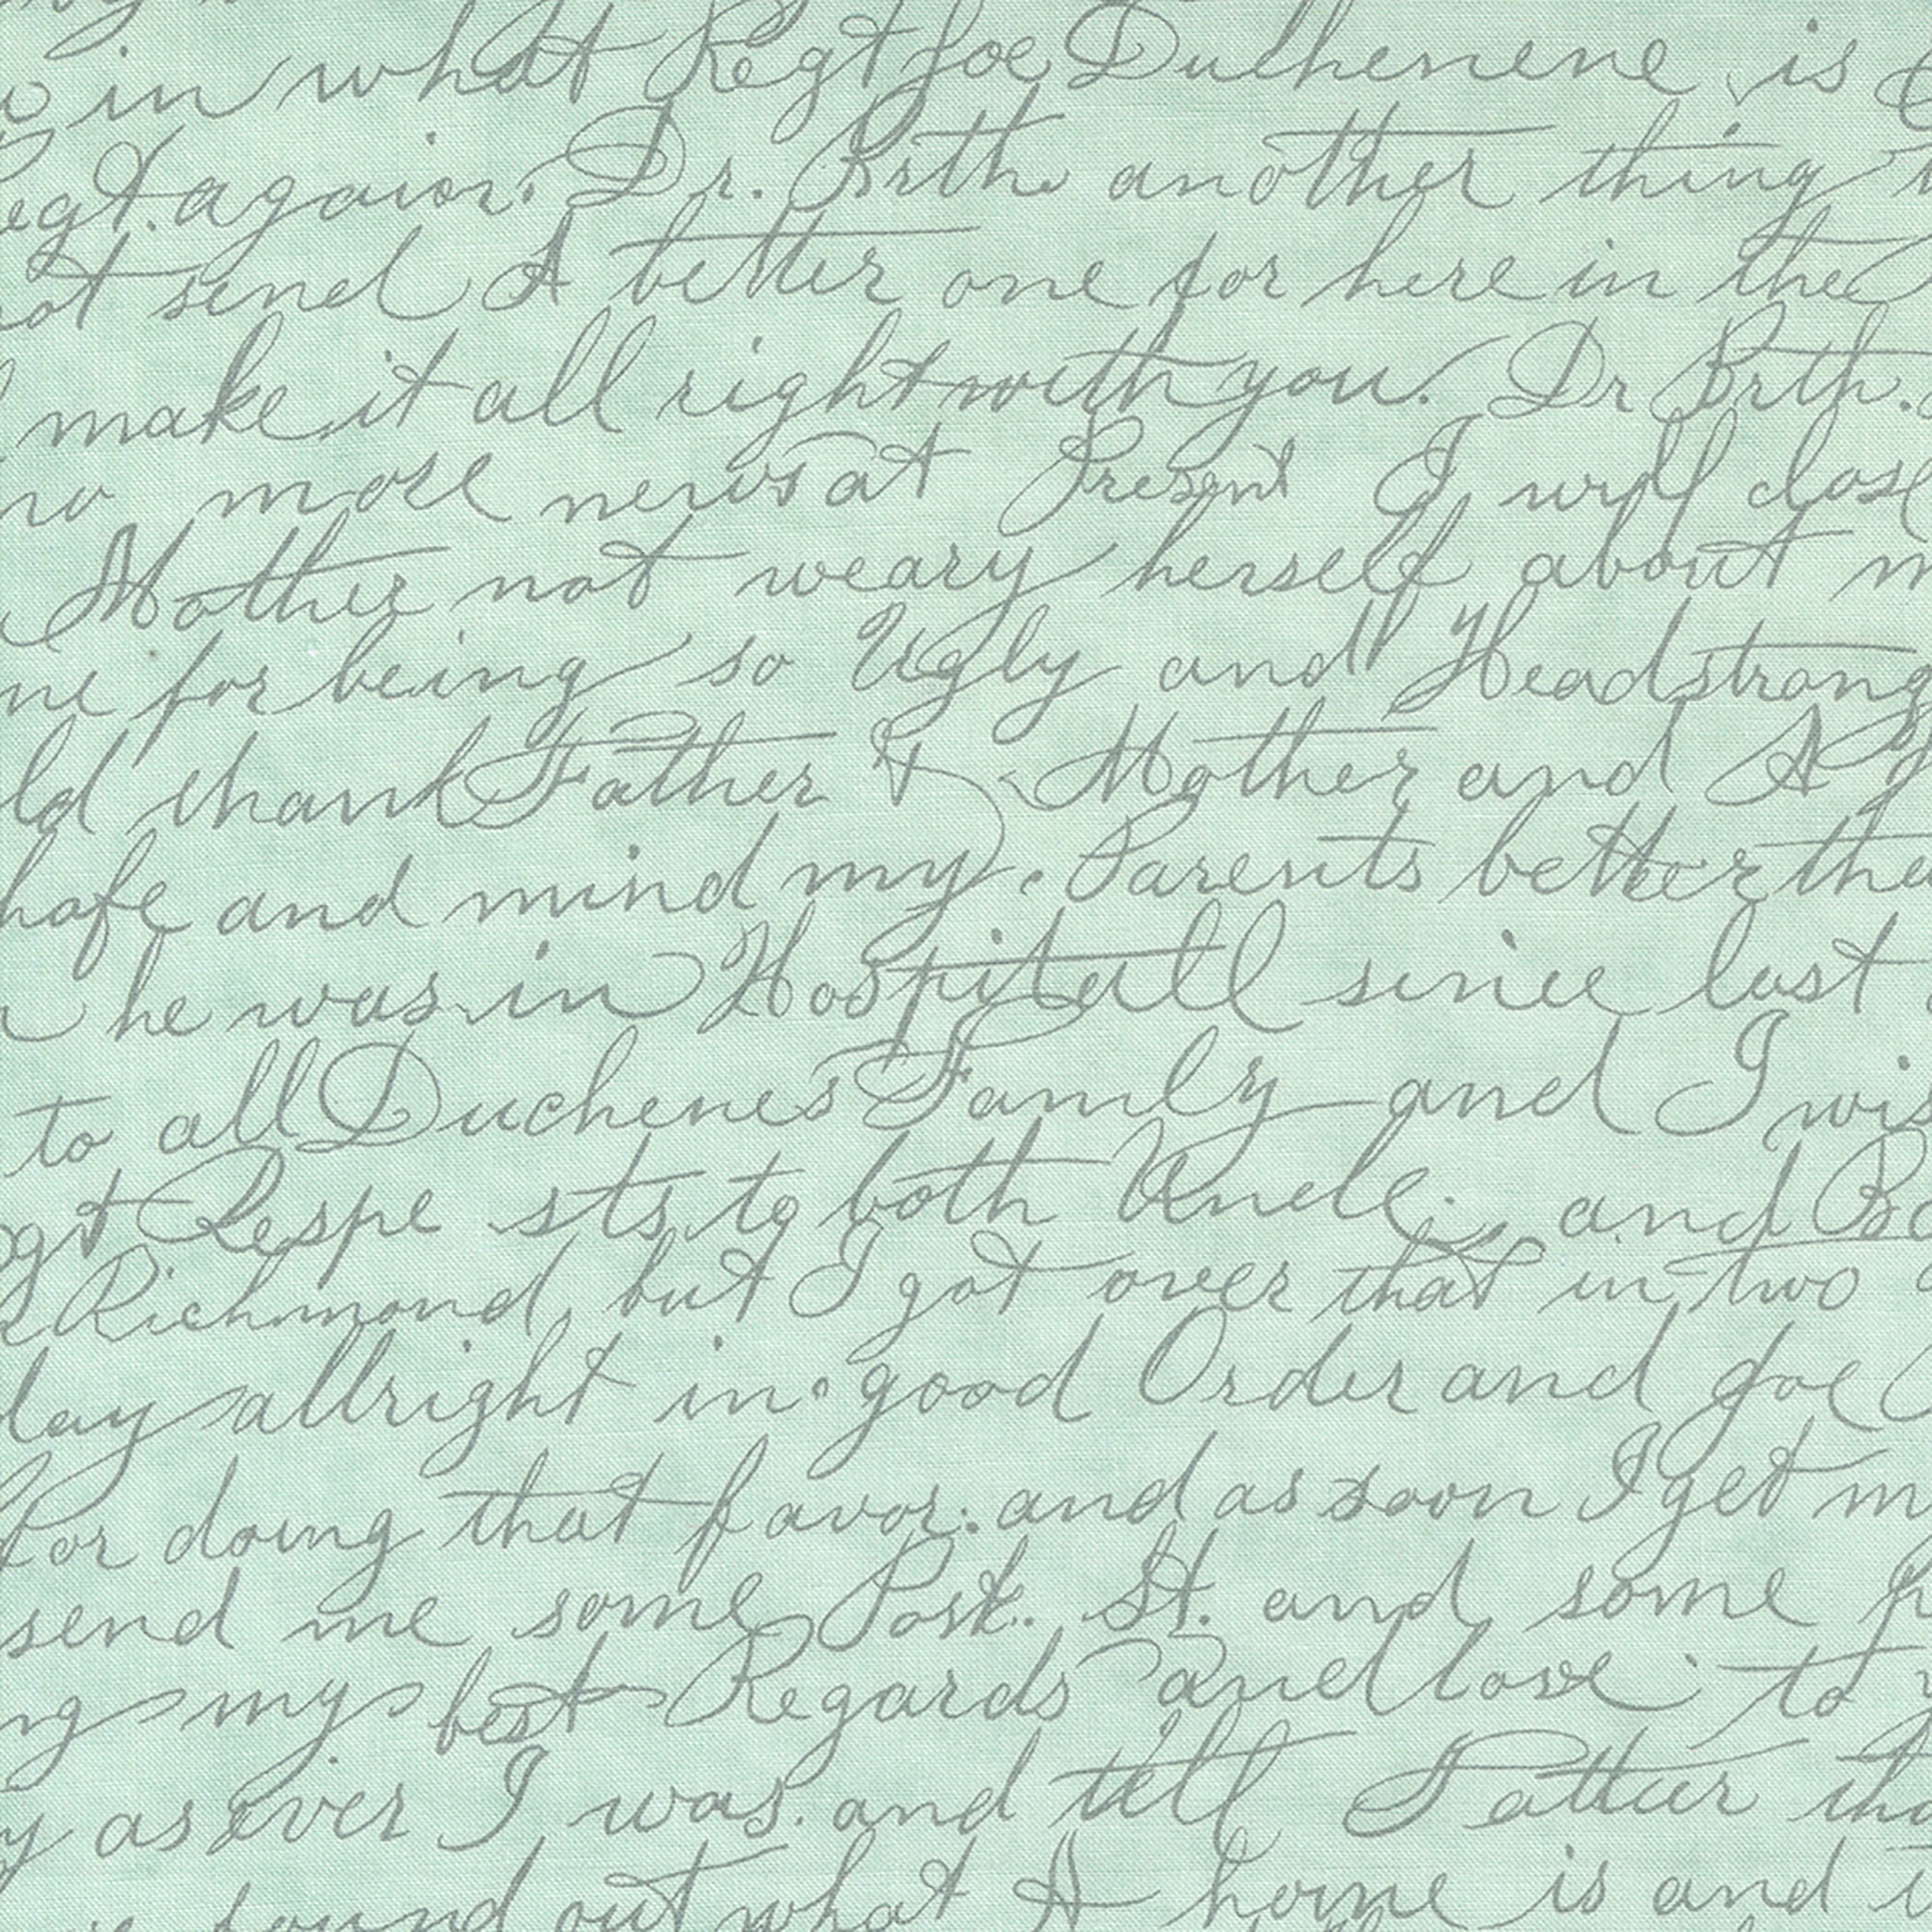 in what Regt Joe Duchenene is
Regt. agaior. Dr. Brth. another thing
not send A better one for here in the
make it all right with you. Dr Brth.
no more news at Present I will close
Mother not weary herself about m
me for being so Ugly and Headstrong
ld thank Father & Mother and A
hafe and mind my. Parents better tha
he was in Hospitall since last
to all Duchenes Family and I wis
gt Respe sts to both Uncle. and Bo
Richmond, but I got over that in two
day allright in good Order and Joe
for doing that favor. and as soon I get m
send me some Post. St. and some
ng my best Regards and love to
y as ever I was. and tell Father tha
found out what A home is and